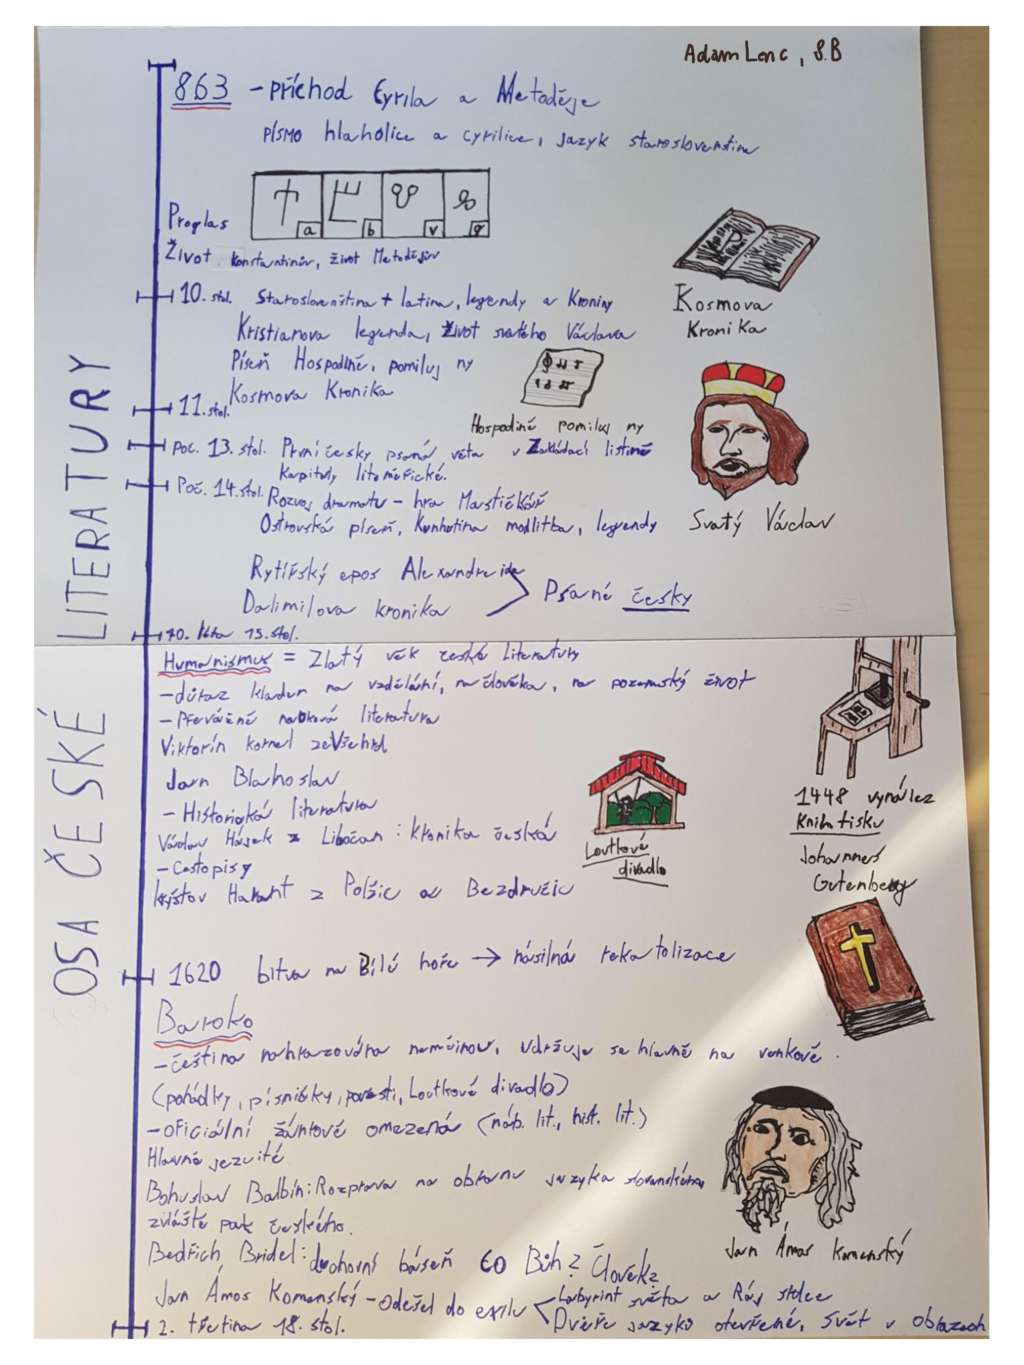 Adam Lenc, 8.B
863 - příchod Cyrila a Metoděje
PÍSMO hlaholice a cyrilice, jazyk staroslověnština
a b v g
Proglas
Život Konstantinův, život Metodějův
10. stol. Staroslověnština + latina, legendy a Kroniky
Kristianova legenda, život svatého Václava
Píseň Hospodině, pomiluj ny
Kosmova Kronika
11. stol.
Kosmova
Kronika
Hospodině pomiluj ny
Poč. 13. stol. První česky psaná věta v Zakládací listině
Kapituly litoměřické.
Poč. 14. stol. Rozvoj dramatu - hra Mastičkář
Ostrovská píseň, Kunhutina modlitba, legendy
Svatý Václav
Rytířský epos Alexandreida
Dalimilova kronika
Psané česky
70. léta 15. stol.
OSA ČESKÉ LITERATURY
Humanismus = Zlatý věk české literatury
- důraz kladen na vzdělání, na člověka, na pozemský život
- Převážně nauková literatura
Viktorín kornel ze Všehrd
Jan Blahoslav
- Historická literatura
Václav Hájek z Libočan: kronika česká
- Cestopisy
kryštov Harant z Polžic a Bezdružic
Loutkové
divadlo
1448 vynález
Knihtisku
Johannes
Gutenberg
1620 bitva na Bílé hoře → násilná rekatolizace
Baroko
- čeština nahrazována němčinou, udržuje se hlavně na venkově.
(pohádky, písničky, pověsti, Loutkové divadlo)
- oficiální žánrově omezená (náb. lit., hist. lit.)
Hlavně jezuité
Bohuslav Balbín: Rozprava na obranu jazyka slovanského,
zvláště pak českého.
Bedřich Bridel: duchovní báseň Co Bůh? Člověk?
Jan Ámos Komenský
Jan Ámos Komenský - odešel do exilu
Labyrint světa a Ráj srdce
Dvéře jazyků otevřené, Svět v obrazech
2. třetina 18. stol.